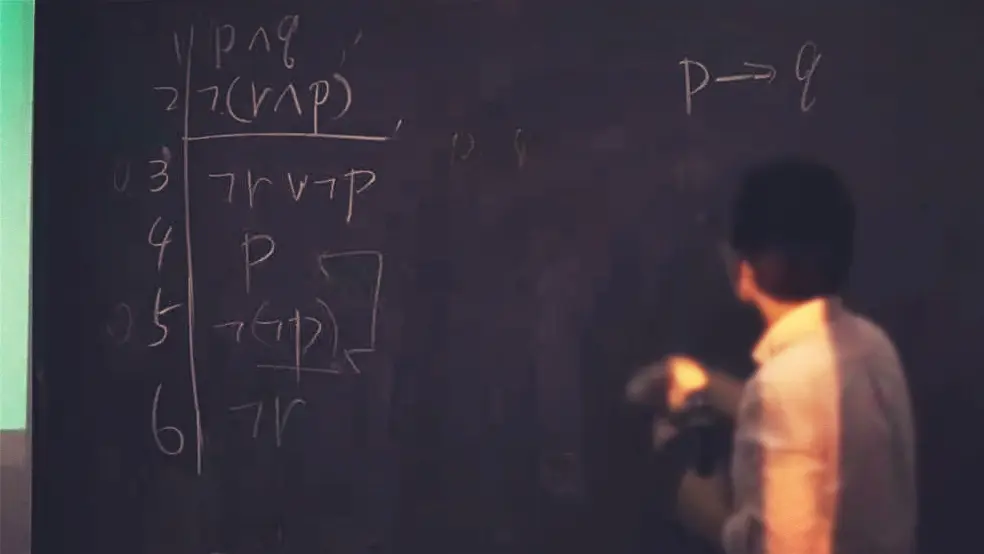 1 p∧q
2 ¬(r∧p)
3 ¬r∨¬p
4 p
5 ¬(¬p)
6 ¬r
p→q